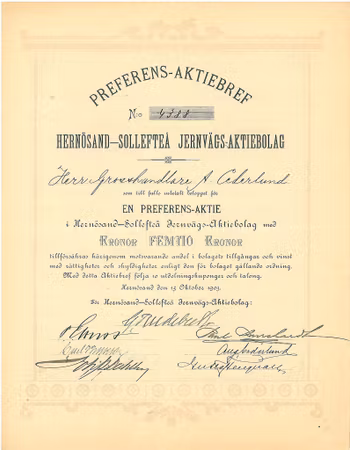 PREFERENS-AKTIEBREF
No 4388
HERNÖSAND—SOLLEFTEÅ JERNVÄGS-AKTIEBOLAG
Herr Grosshandlare A. Cederlund
som till fullo inbetalt beloppet för
EN PREFERENS-AKTIE
i Hernösand—Sollefteå Jernvägs-Aktiebolag med
KRONOR FEMTIO KRONOR
tillförsäkras härigenom motsvarande andel i bolagets tillgångar och vinst
med rättigheter och skyldigheter enligt den för bolaget gällande ordning.
Med detta Aktiebref följa 10 utdelningskuponger och talong.
Hernösand den 15 Oktober 1903.
För Hernösand—Sollefteå Jernvägs-Aktiebolag: